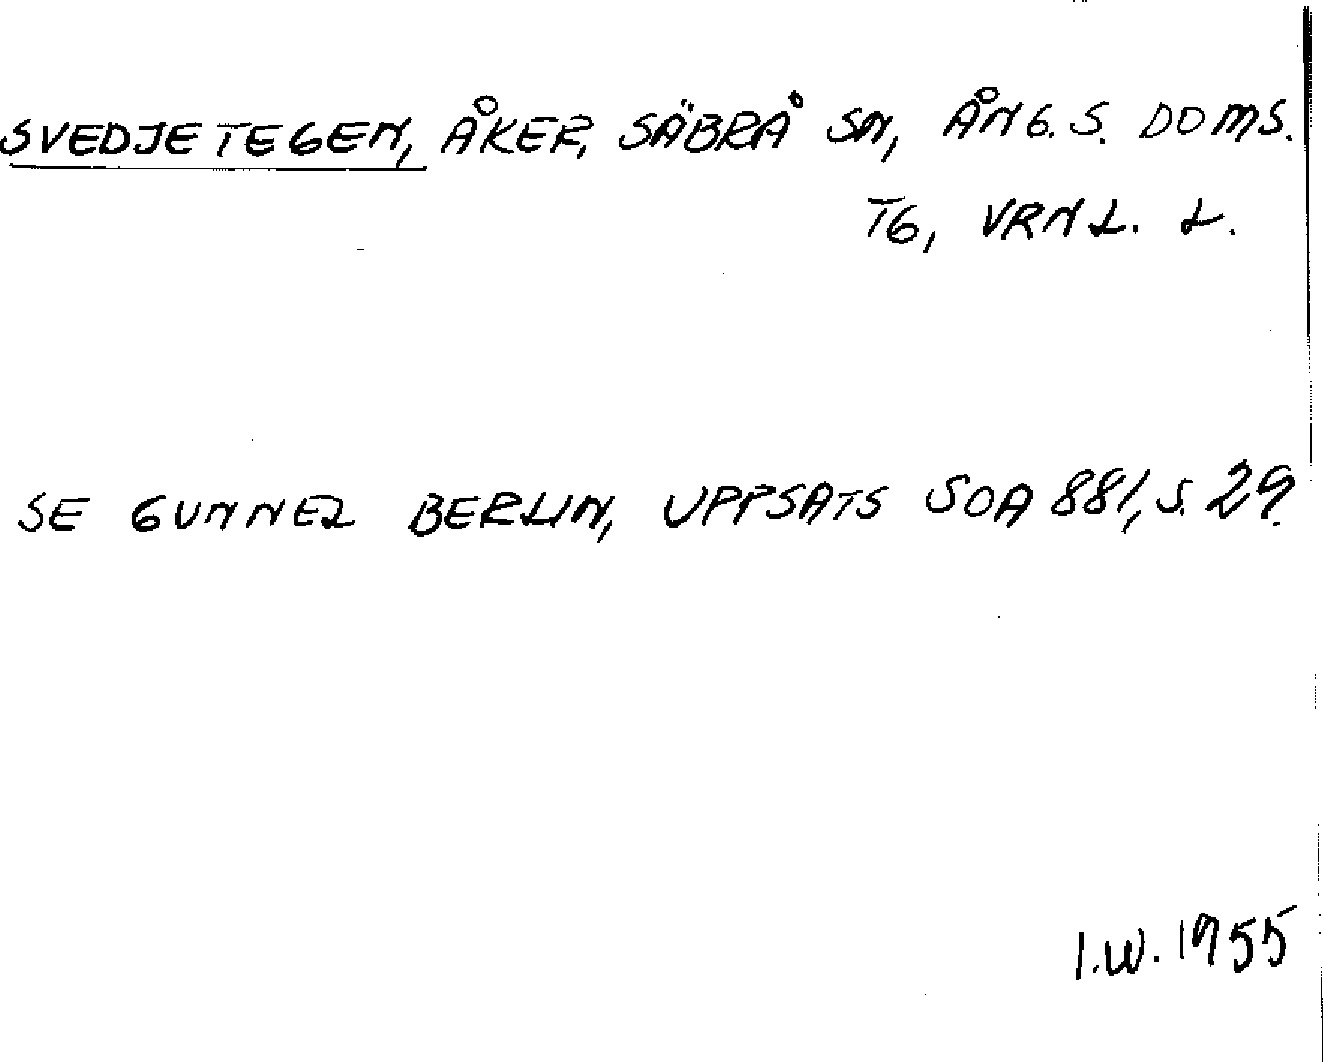 SVEDJETEGEN, ÅKER, SÄBRÅ SN, ÅNG. S. DOMS.
TG, VRNL. L.
SE GUNNEL BERLIN, UPPSATS SOA 881, S. 29.
I.W. 1955